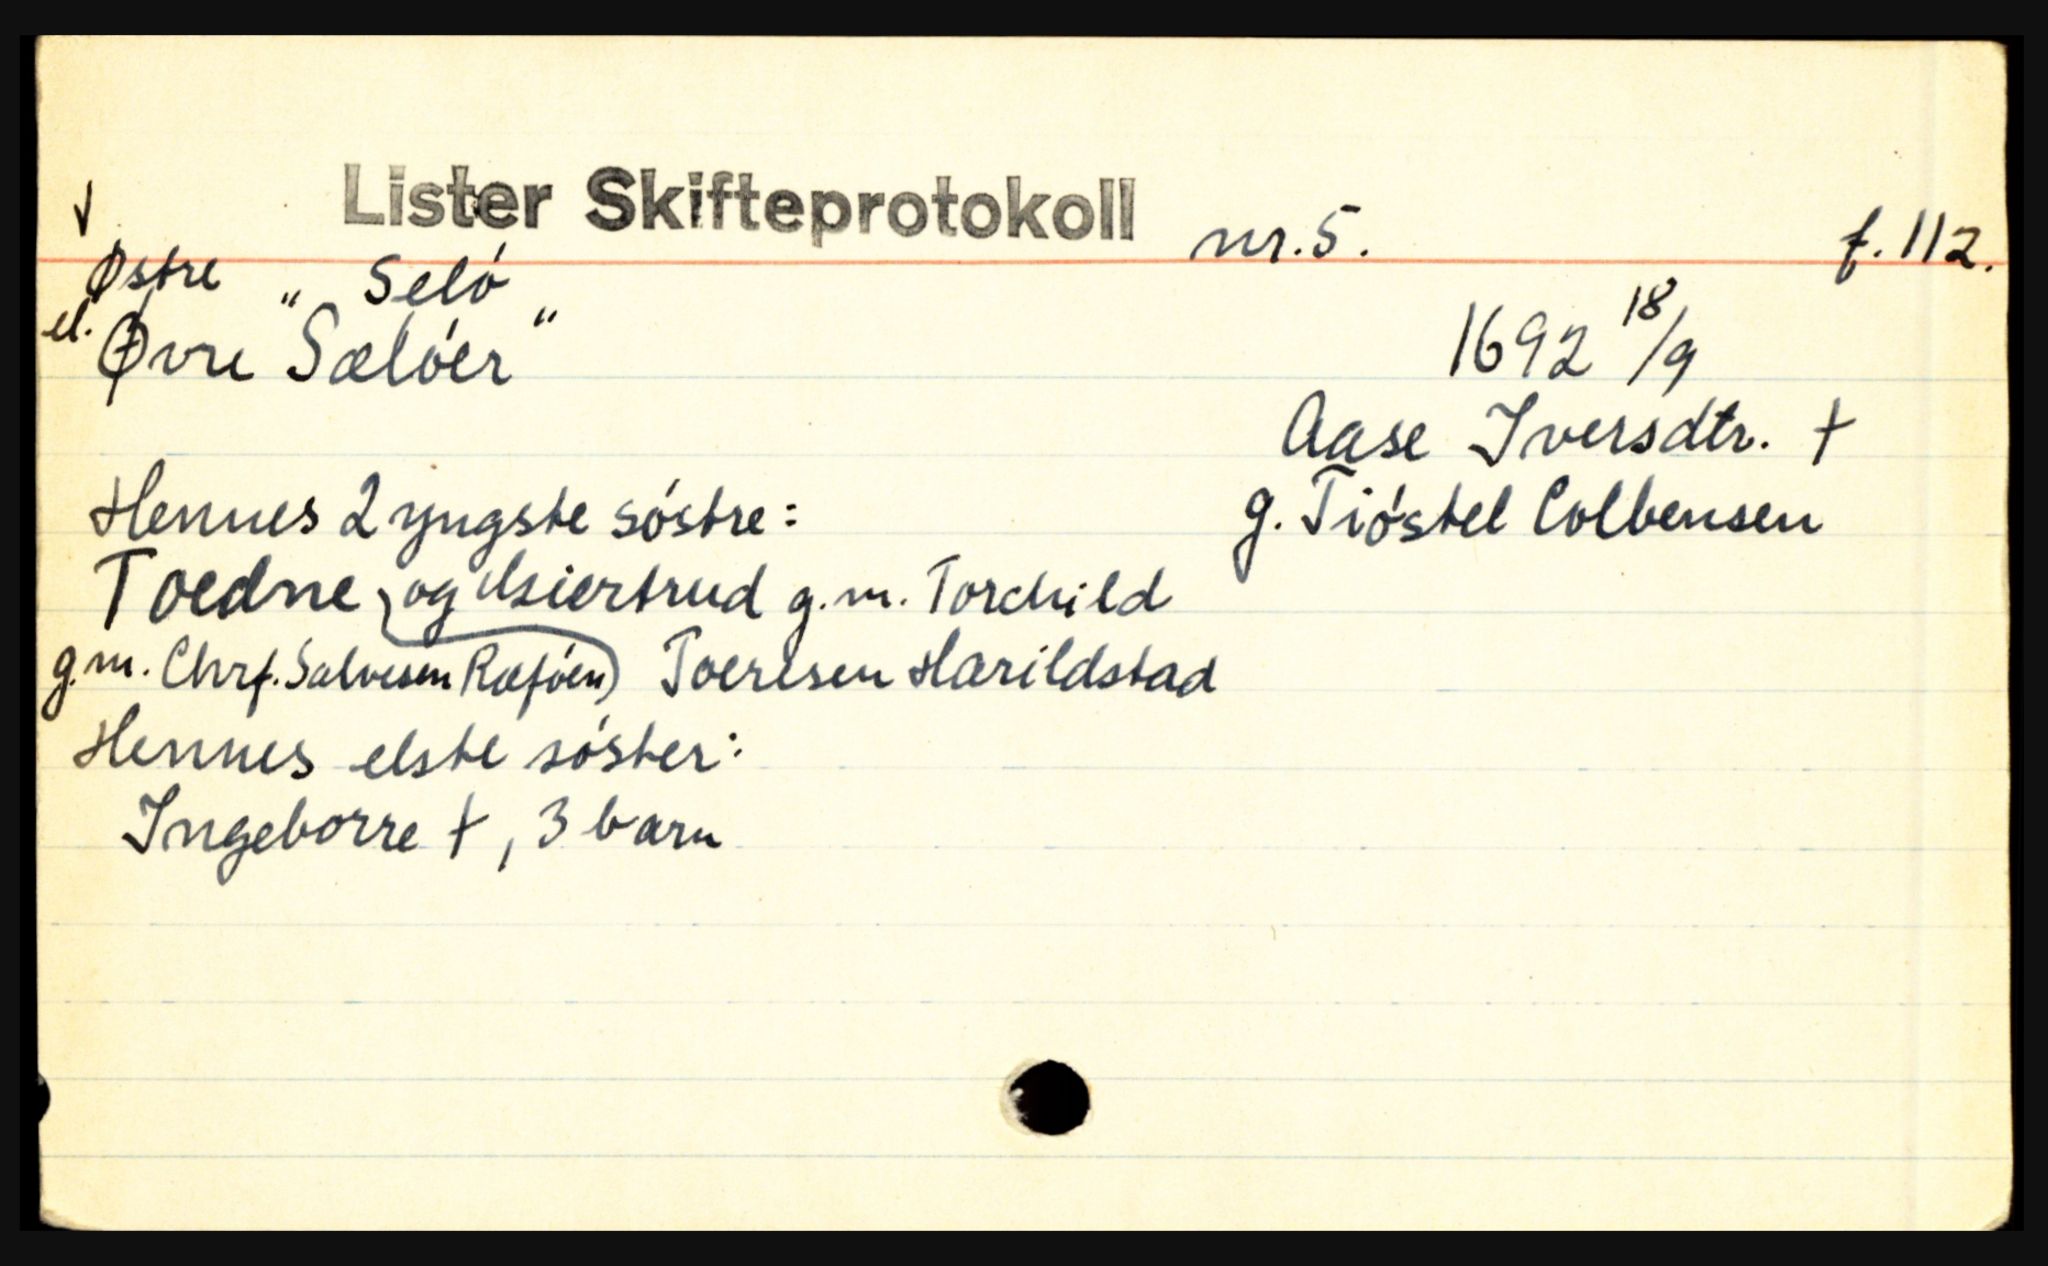 Lister Skifteprotokoll nr. 5. f. 112.
Østre " Selö
el. Øvre "Sælöer"
1692 18/9
Aase Iversdtr. †
g. Tiöstel Colbensen
Hennes 2 yngste söstre:
Toedne og Usiertrud g.m. Torchild
g.m. Chrf. Salvesen Ræföen) Toerisen Harildstad
Hennes elste söster:
Ingeborre †, 3 barn